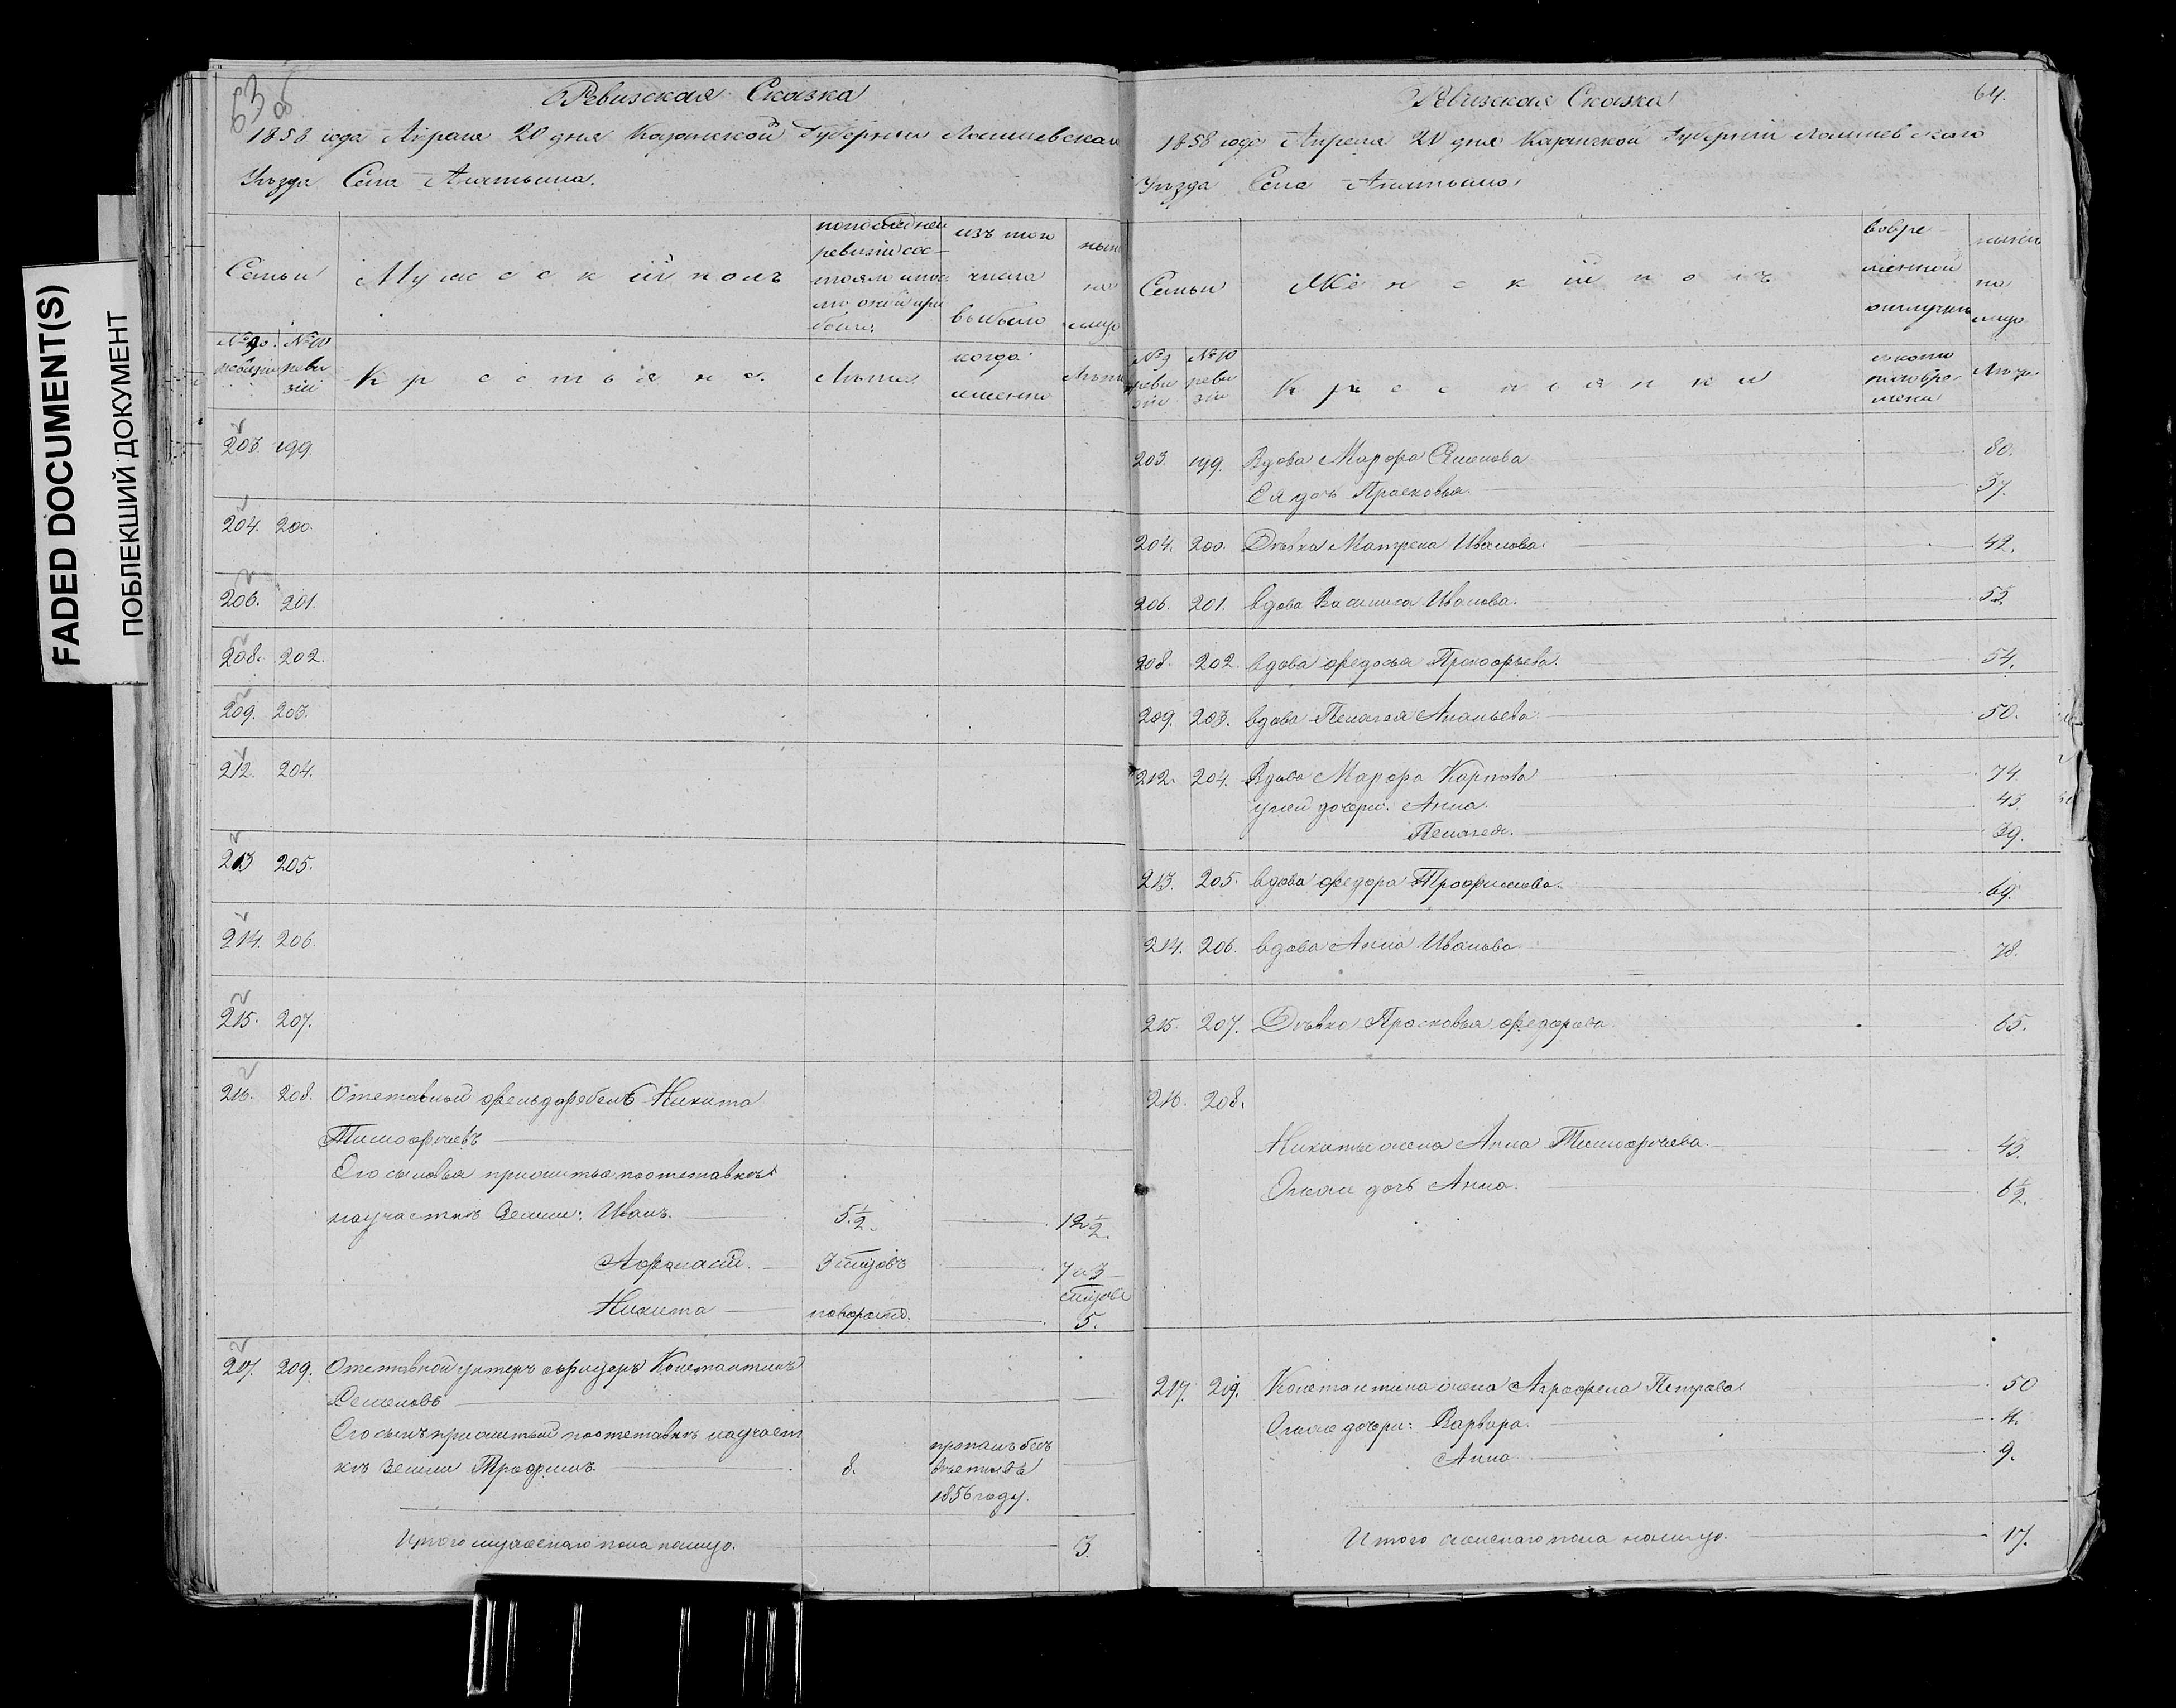 FADED DOCUMENT(S)
ПОБЛЕКШИЙ ДОКУМЕНТ
63 об
Ревизская Сказка
1858 года Апреля 20 дня Казанской Губернии Лаишевскаго
Уѣзда Села Анатыша.
Семьи
Мужескій полъ
по последней
ревизіи сос-
тояло и пос-
ле оной при
было.
изъ того
числа
выбыло
ныне
на
лицо
№ 9.
ревизіи
№ 10
реви
зіи
Крестьяне.
Лѣта.
когда
именно
Лѣта
203. 199.
204. 200.
206. 201.
208. 202.
209. 203.
212. 204.
213 205.
214. 206.
215. 207.
216. 208. Отставной фельдфебель Никита
Тимофѣевъ
Его сыновья прижитые по отставкѣ
на участкѣ земли: Иванъ. 5 1/2. 12 1/2.
Афанасій. 3 мѣсяцовъ 7 и 3
мѣсяца
Никита новорожд. 5.
217. 209. Отставной унтеръ офицеръ Константинъ
Семеновъ
Его сынъ прижитый по отставкѣ на участ
кѣ земли Трофимъ 8.
пропалъ безъ
вѣсти въ
1856 году.
Итого мужескаго пола налицо. 3.
Ревизская Сказка
64.
1858 года Апреля 20 дня Казанской Губерніи Лаишевскаго
Уѣзда Села Анатыша
Семьи
Женскій полъ
во вре
менной
отлучкѣ
ныне
на
лицо
№ 9
реви
зіи
№ 10
реви
зіи
Крестьянки
съ кото
раго вре-
мени
Лѣта.
203. 199. Вдова Марфа Семенова 80.
Ея дочь Прасковья. 37.
204. 200. Дѣвка Матрена Иванова. 42.
206. 201. Вдова Василиса Иванова. 53.
208. 202. Вдова Федосья Прокофьева. 54.
209. 203. Вдова Пелагея Ананьева. 50.
212. 204. Вдова Марфа Карпова 74.
у ней дочери: Анна. 43
Пелагея. 39.
213. 205. Вдова Федора Трофимова. 69.
214. 206. Вдова Анна Иванова. 78.
215. 207. Дѣвка Прасковья Федорова. 65.
216. 208.
Никиты жена Анна Тимофѣева. 43.
Онаго дочь Анна. 6 1/2.
217. 209. Константина жена Аграфена Петрова. 50
Онаго дочери: Варвара. 11.
Анна 9.
Итого женскаго пола налицо. 17.